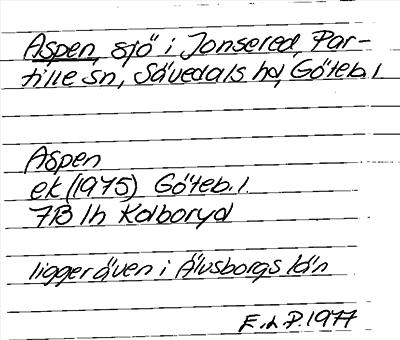 Aspen, sjö i Jonsered, Par-
tille sn, Sävedals hd, Göteb. l
Aspen
ek (1975) Göteb. l
7B 1h Kolboryd
ligger även i Älvsborgs län
F.h.P. 1977